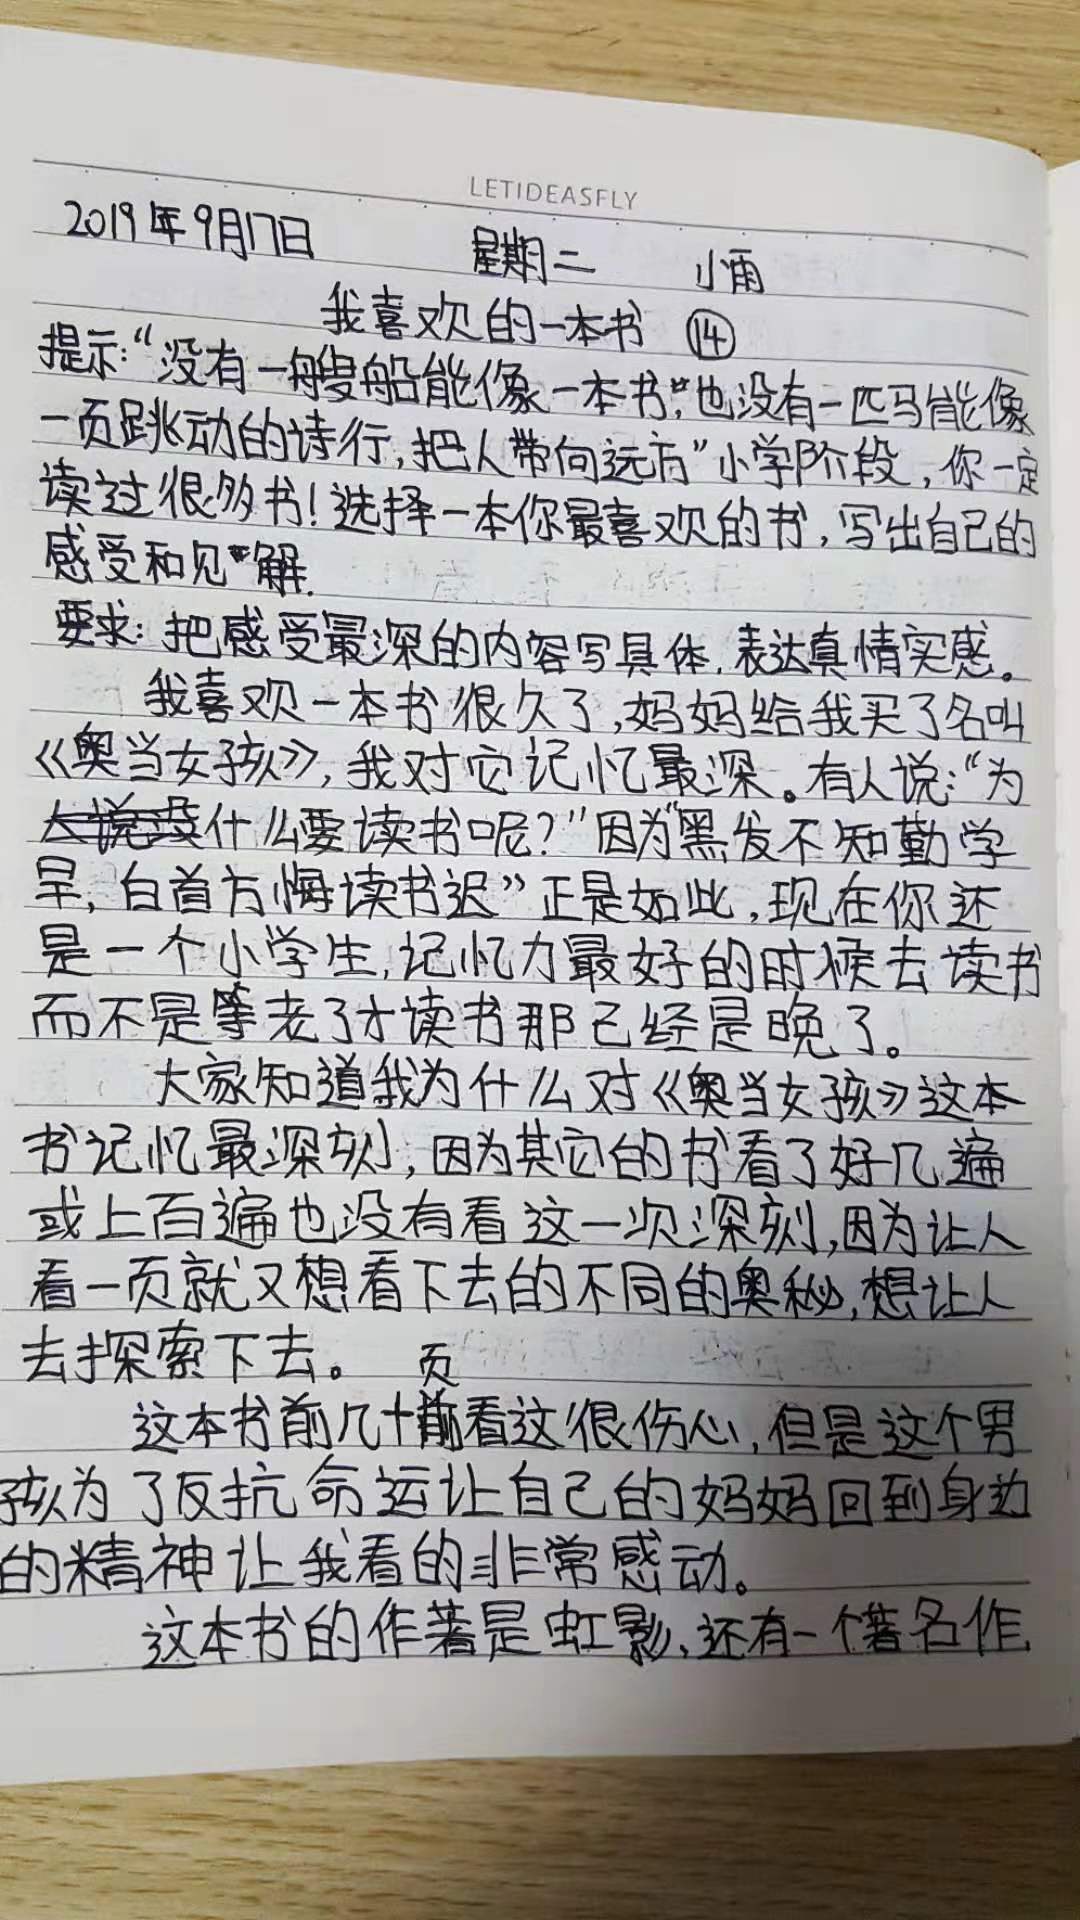 LETIDEASFLY
2019年9月17日 星期二 小雨
我喜欢的一本书 ⑭
提示:“没有一艘船能像一本书,也没有一匹马能像
一页跳动的诗行,把人带向远方”小学阶段,你一定
读过很多书!选择一本你最喜欢的书,写出自己的
感受和见解.
要求:把感受最深的内容写具体,表达真情实感。
我喜欢一本书很久了,妈妈给我买了名叫
《奥当女孩》,我对它记忆最深。有人说:“为
什么要读书呢?”因为“黑发不知勤学
早,白首方悔读书迟”正是如此,现在你还
是一个小学生,记忆力最好的时候去读书
而不是等老了才读书那已经是晚了。
大家知道我为什么对《奥当女孩》这本
书记忆最深刻,因为其它的书看了好几遍
或上百遍也没有看这一次深刻,因为让人
看一页就又想看下去的不同的奥秘,想让人
去探索下去。 页
这本书前几十前看这很伤心,但是这个男
孩为了反抗命运让自己的妈妈回到身边
的精神让我看的非常感动。
这本书的作著是虹影,还有一个著名作